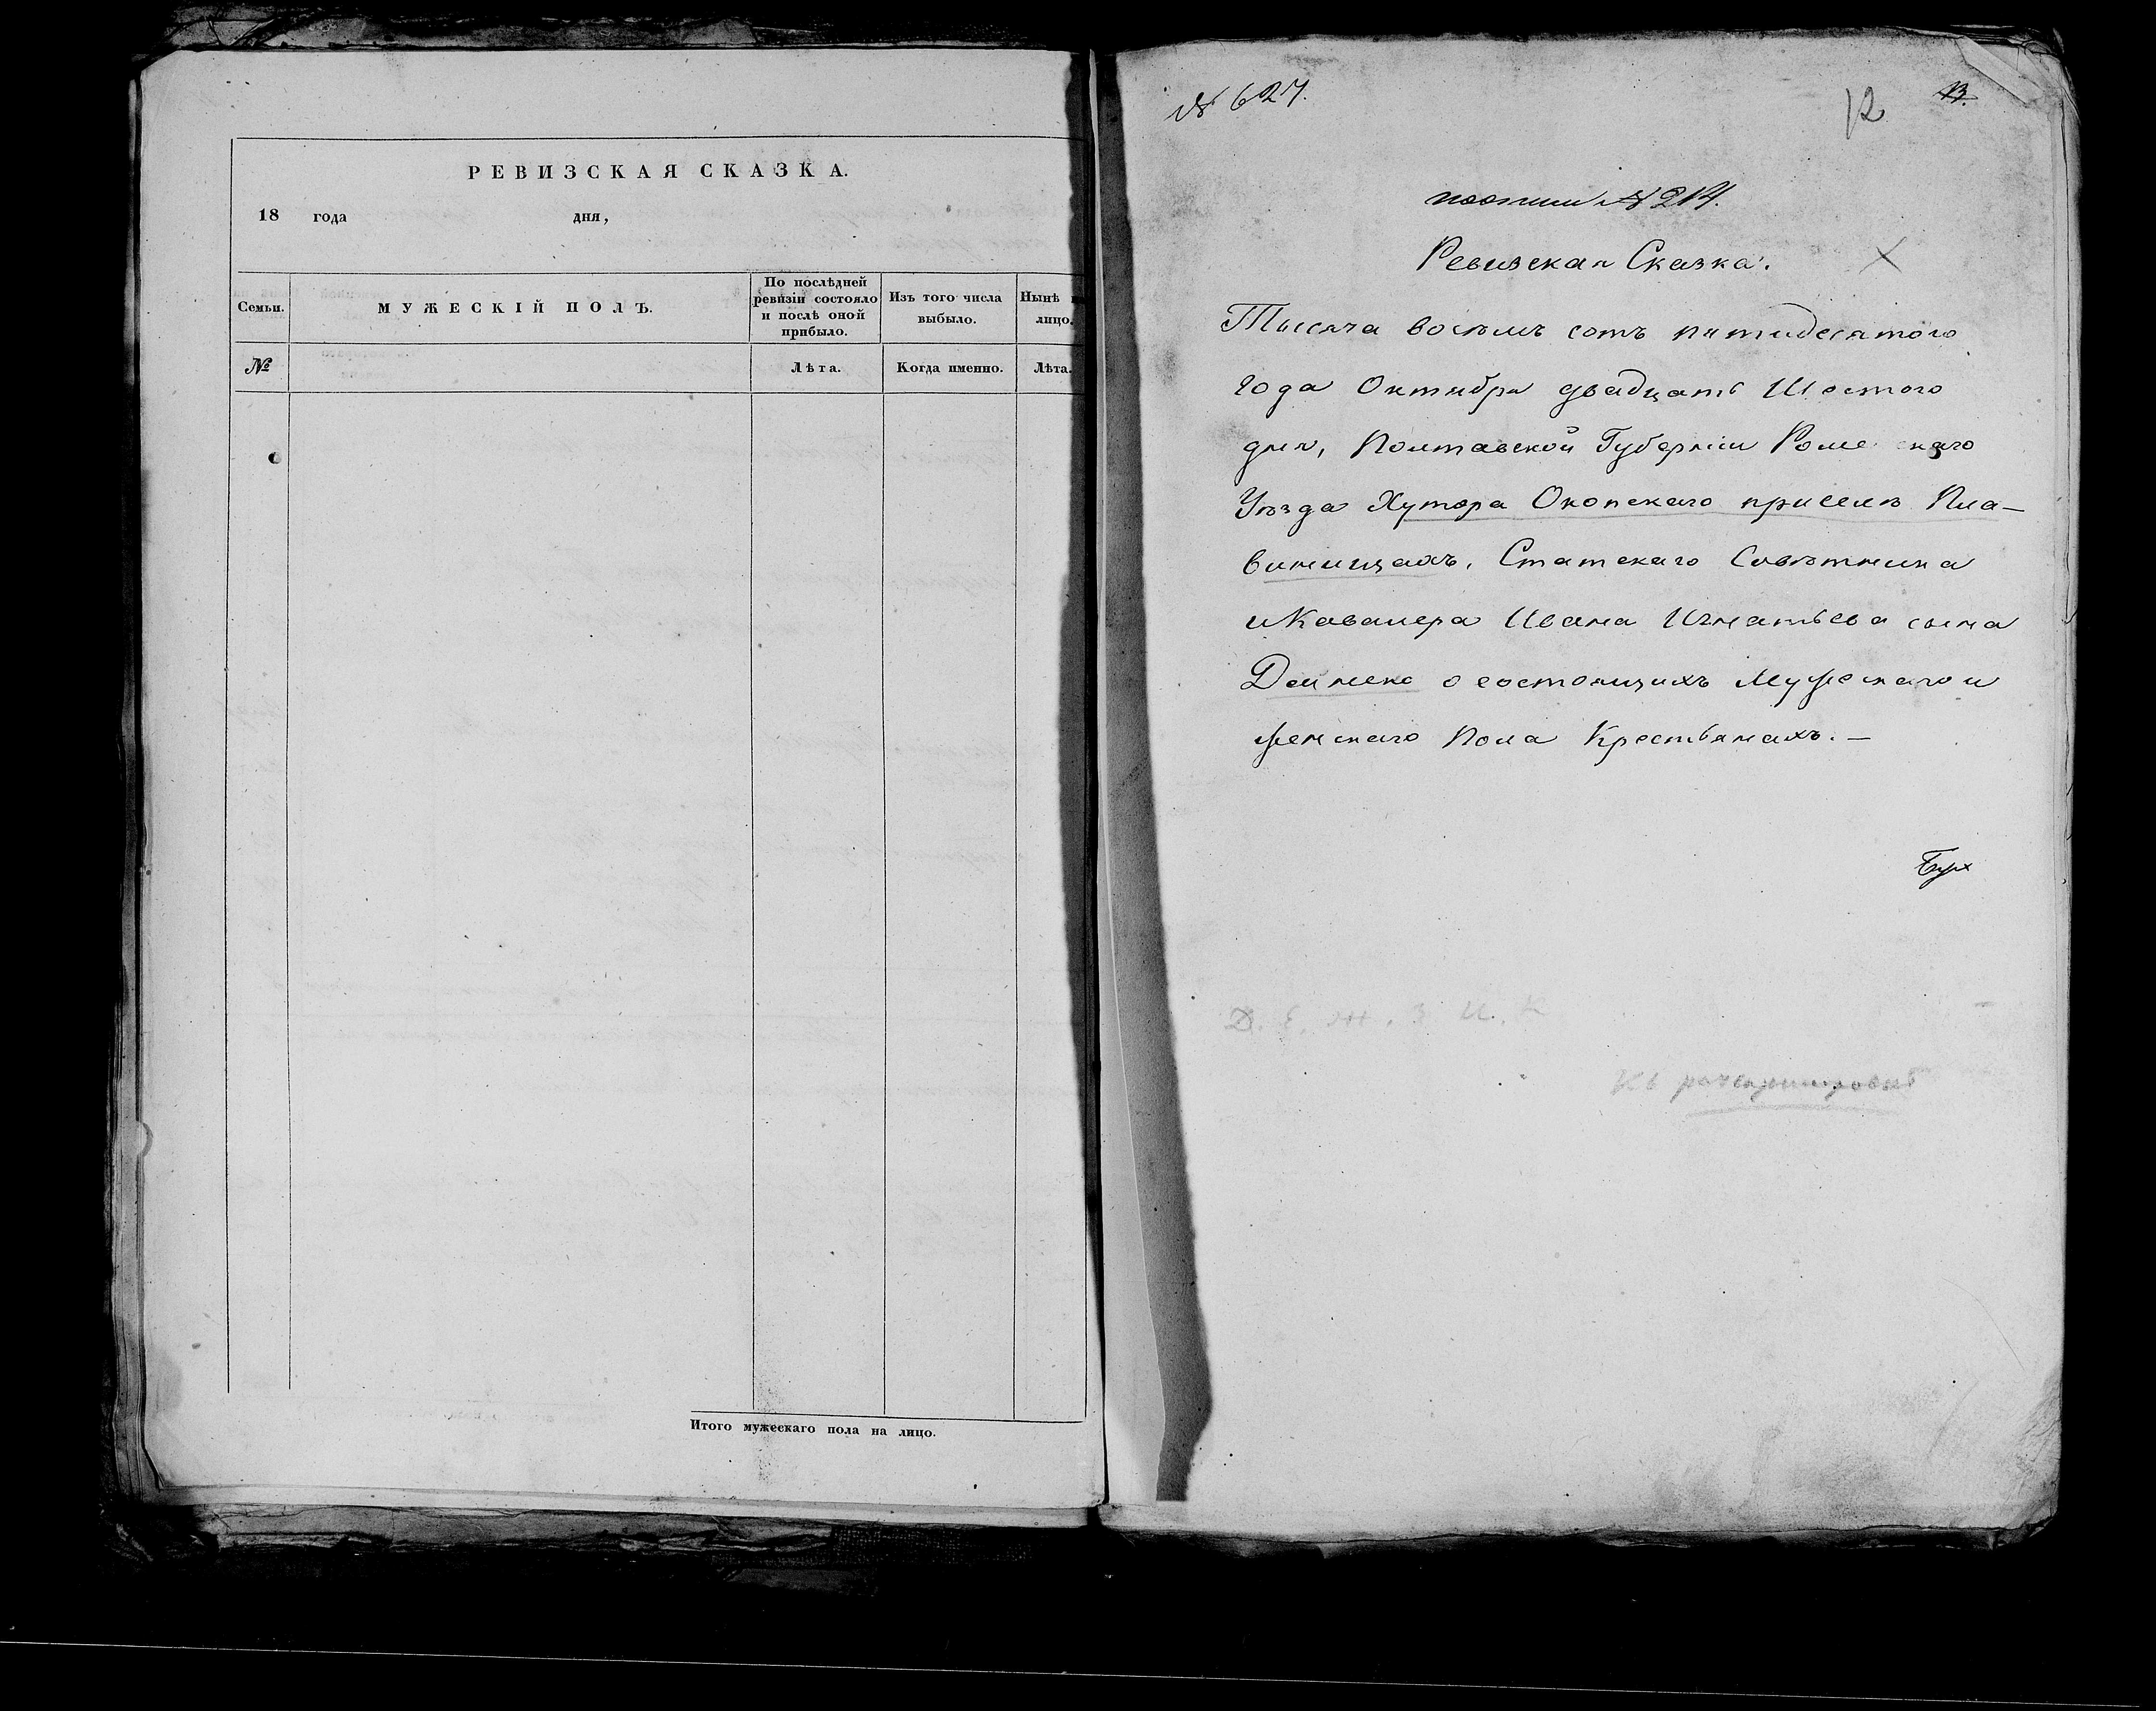 РЕВИЗСКАЯ СКАЗКА.
18 года дня,
Семьи. МУЖЕСКІЙ ПОЛЪ. По послѣдней ревизіи состояло и послѣ оной прибыло. Изъ того числа выбыло. Нынѣ лицо.
№ Лѣта. Когда именно. Лѣта.
Итого мужескаго пола на лицо.
№ 627.
12 13.
№ 214.
Ревизская Сказка.
Тысяча восѣмъ сотъ пятидесятого
года Октября двадцать Шестого
дня, Полтавской Губерніи Роменскаго
Уѣзда Хутора Окопскаго приселѣ Пла-
винищахъ, Статскаго Совѣтника
и Кавалера Ивана Игнатьева сына
Дейнеко о состоящихъ Мужескаго и
женскаго Пола Крестьянахъ.—
Д. Е. Ж. З. И. К